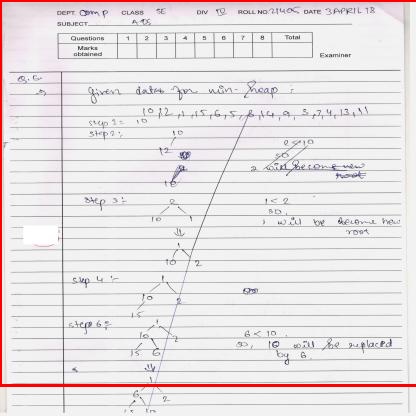 DEPT. Comp CLASS SE DIV ROLL NO. 21405 DATE 3 APRIL 18
SUBJECT ADS
Questions 1 2 3 4 5 6 7 8 Total
Marks obtained
Examiner
Q.6
Given data for min-heap :
step 1 = 10
step 2 :
10
12
2 < 10
so
2 will become new root
step 3 :-
2
10 12
1 < 2
so,
1 will be become new root
1
10 2
step 4 :-
1
10 2
15
step 6 :-
1
10 2
15 6
6 < 10.
so, 10 will be replaced by 6.
1
6 2
15 10